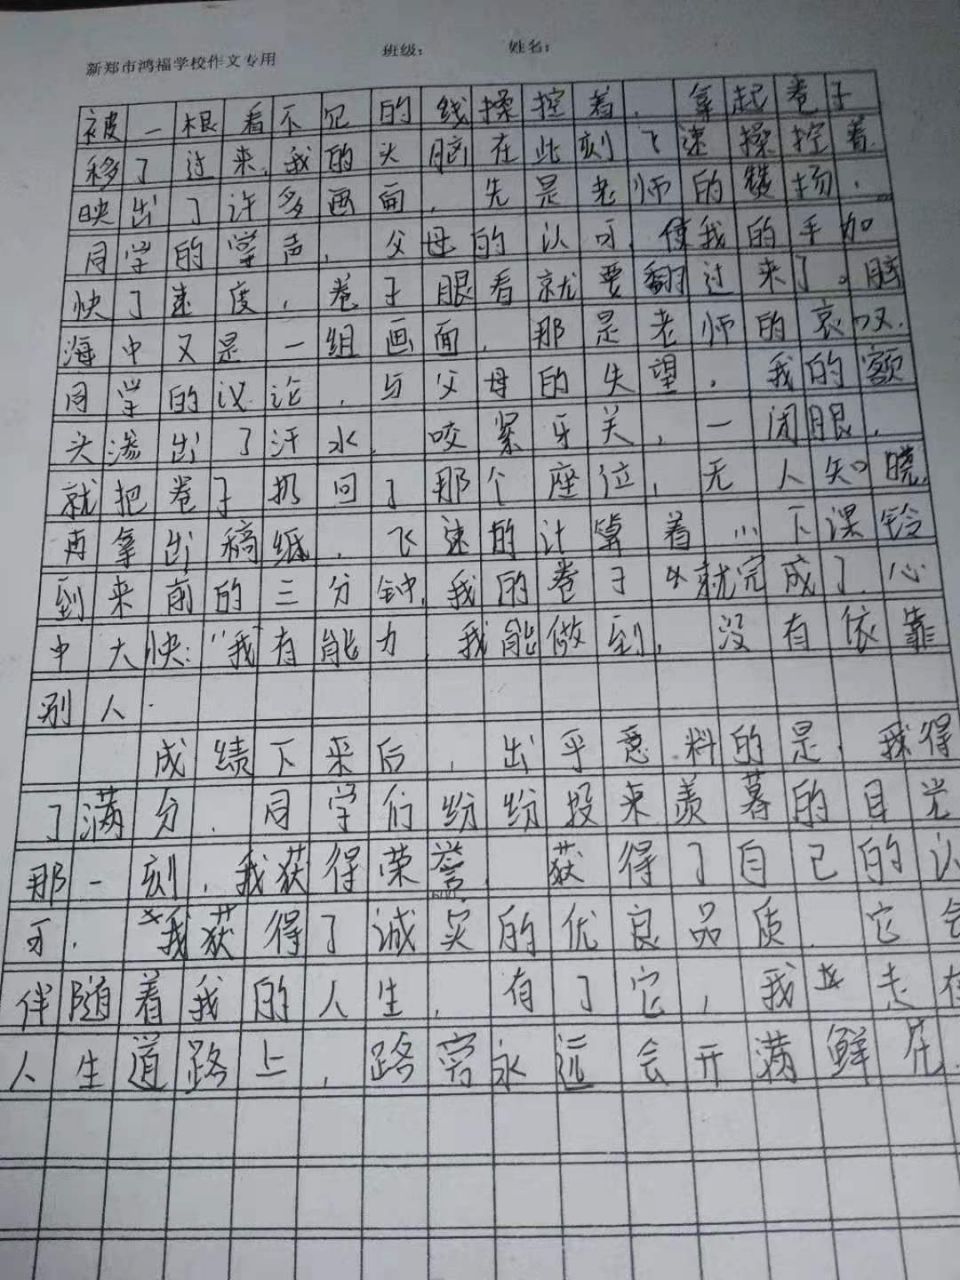 新郑市鸿福学校作文专用 班级： 姓名：
被一根看不见的线操控着，拿起卷子
移了过来，我的头脑在此刻飞速操控着
映出了许多画面，先是老师的赞扬，
同学的掌声，父母的认可，使我的手加
快了速度，卷子眼看就要翻过来了。脑
海中又是一组画面，那是老师的哀叹，
同学的议论，与父母的失望，我的额
头渗出了汗水，咬紧牙关，一闭眼，
就把卷子扔回了那个座位，无人知晓，
再拿出稿纸，飞速的计算着…下课铃
到来前的三分钟，我的卷子就完成了，心
中大快：“我有能力，我能做到，没有依靠
别人．
成绩下来后，出乎意料的是，我得
了满分，同学们纷纷投来羡慕的目光
那一刻，我获得荣誉，获得了自己的认
可．我获得了诚实的优良品质，它会
伴随着我的人生，有了它，我走在
人生道路上，路旁永远会开满鲜花．